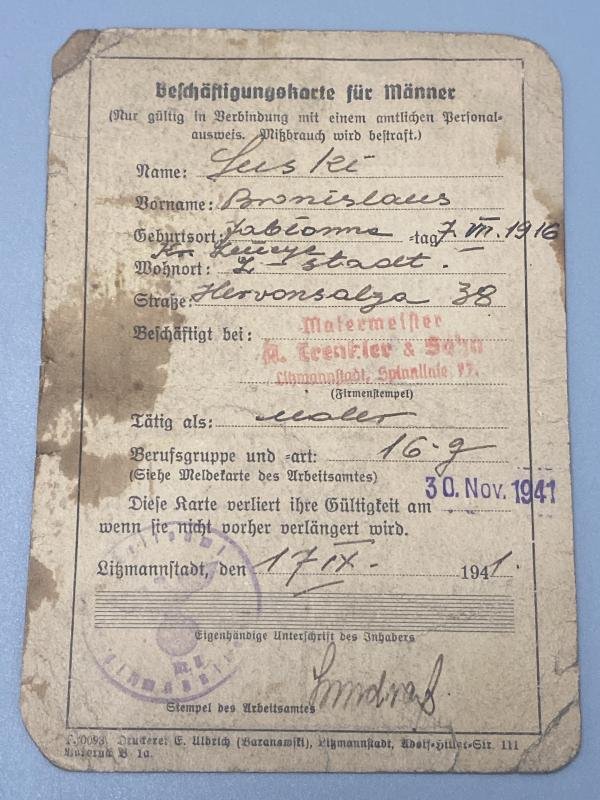 Beschäftigungskarte für Männer
(Nur gültig in Verbindung mit einem amtlichen Personal-
ausweis. Mißbrauch wird bestraft.)
Name: Suski
Vorname: Bronislaus
Geburtsort: -tag 7. III. 1916
Kr.
Wohnort: L-stadt.
Straße: Hervonsalza 38
Beschäftigt bei: Malermeister
A. Trenkler & Sohn
Litzmannstadt, Spinnlinie
(Firmenstempel)
Tätig als: Maler
Berufsgruppe und =art: 16-g
(Siehe Meldekarte des Arbeitsamtes)
Diese Karte verliert ihre Gültigkeit am 30. Nov. 1941
wenn sie nicht vorher verlängert wird.
Litzmannstadt, den 17 IX. 1941.
Eigenhändige Unterschrift des Inhabers
Stempel des Arbeitsamtes
Druckerei E. Ulbrich (Baranowski), Litzmannstadt, Adolf-Hitler-Str. 111
B 1a.